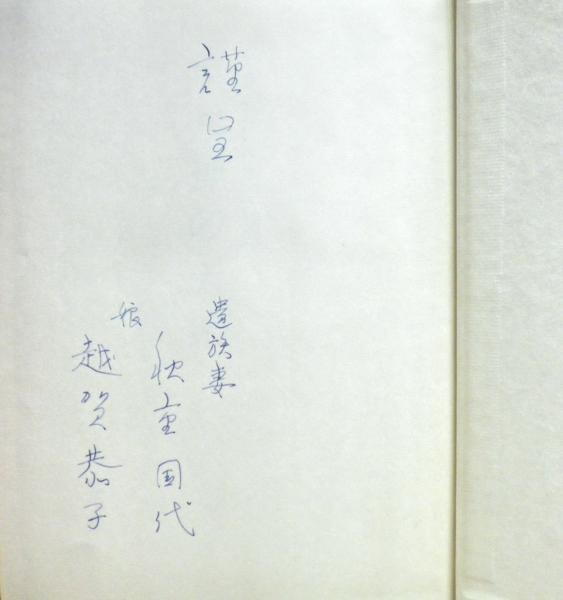 謹呈
遺族妻
秋重国代
娘
越賀恭子